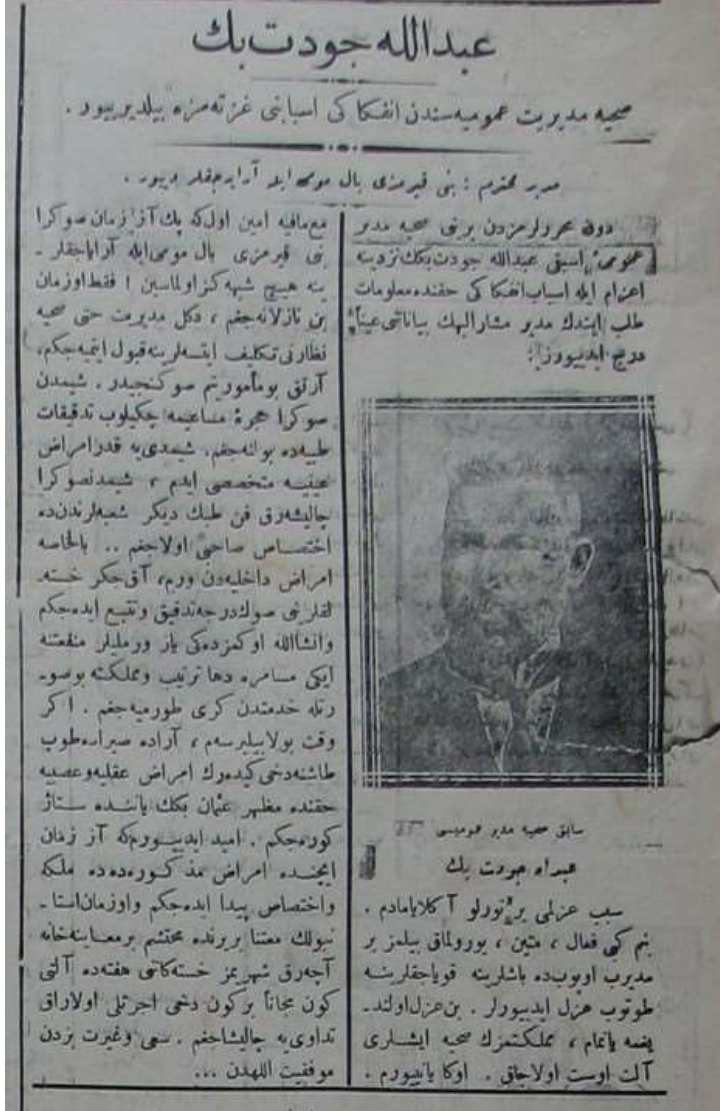 عبدالله جودت بك
صحیه مدیریت عمومیه‌سندن انفكاكی اسبابنی غزته‌مزه بیلدیرییور .
مدیر محترم : بنی قیرمزی بال مومی ایله آرایه‌جقلر دییور .
دون محررلرمزدن برینی صحیه مدیر
عمومی اسبقی عبدالله جودت بكك نزدینه
اعزام ایله اسباب انفكاكی حقنده معلومات
طلب ایتدك مدیر مشارالیهك بیاناتنی عیناً
درج ایدییورز :
سابق صحیه مدیر عمومیسی
عبدالله جودت بك
سبب عزلمی بر تورلو آكلایامادم .
بنم كبی فعال ، متین ، یورولماق بیلمز بر
مدیری اویوب ده باشلرینه قویاجقلرینه
طوتوب عزل ایدییورلر . بن عزل اولند-
یغمه یانمام ، مملكتمزك صحیه ایشلری
آلت اوست اولاجاق . اوكا یانییورم .
مع مافیه امین اول كه پك آز زمان صوكرا
بنی قیرمزی بال مومی ایله آرایاجقلر -
ینه هیچ شبهه‌كز اولماسین ! فقط اوزمان
بن نازلانه‌جغم ، دكل مدیریت حتی صحیه
نظارتی تكلیف ایتسه‌لر ینه قبول ایتمیه‌جكم ،
آرتق بو مأموریتم صوكنجیدر . شیمدن
صوكرا حجرهٔ مساعیمه چكیلوب تدقیقات
طبیه‌ده بولنه‌جغم . شیمدی‌یه قدر امراض
عینیه متخصصی ایدم ، شیمدنصوكرا
چالیشه‌رق فن طبك دیگر شعبه‌لرنده‌ده
اختصاص صاحبی اولاجغم .. بالخاصه
امراض داخلیه‌دن ورم، آق جكر خسته-
لقلرنی صوك درجه تدقیق و تتبع ایده‌جكم
وانشاالله اوكمزده‌كی یاز ورملیلر منفعتنه
ایكی مسامره دها ترتیب و مملكته بو صو-
رتله خدمتدن كری طورمیه‌جغم . اكر
وقت بولابیلیرسه‌م ، آراده صیراده طوپ
طاشنه دخی كیده‌رك امراض عقلیه و عصبیه
حقنده مظهر عثمان بكك یاننده ستاژ
كوره‌جكم . امید ایدییورم كه آز زمان
ایچنده امراض مذكوره‌ده‌ده ملكه
و اختصاص پیدا ایده‌جكم و اوزمان استا-
نبولك معتنا بر یرنده محتشم بر معاینه‌خانه
آچه‌رق شهریمز خسته‌كانی هفته‌ده آلتی
كون مجاناً بر كون دخی اجرتلی اولاراق
تداوی‌یه چالیشاجغم . سعی و غیرت بزدن
موفقیت اللهدن ...